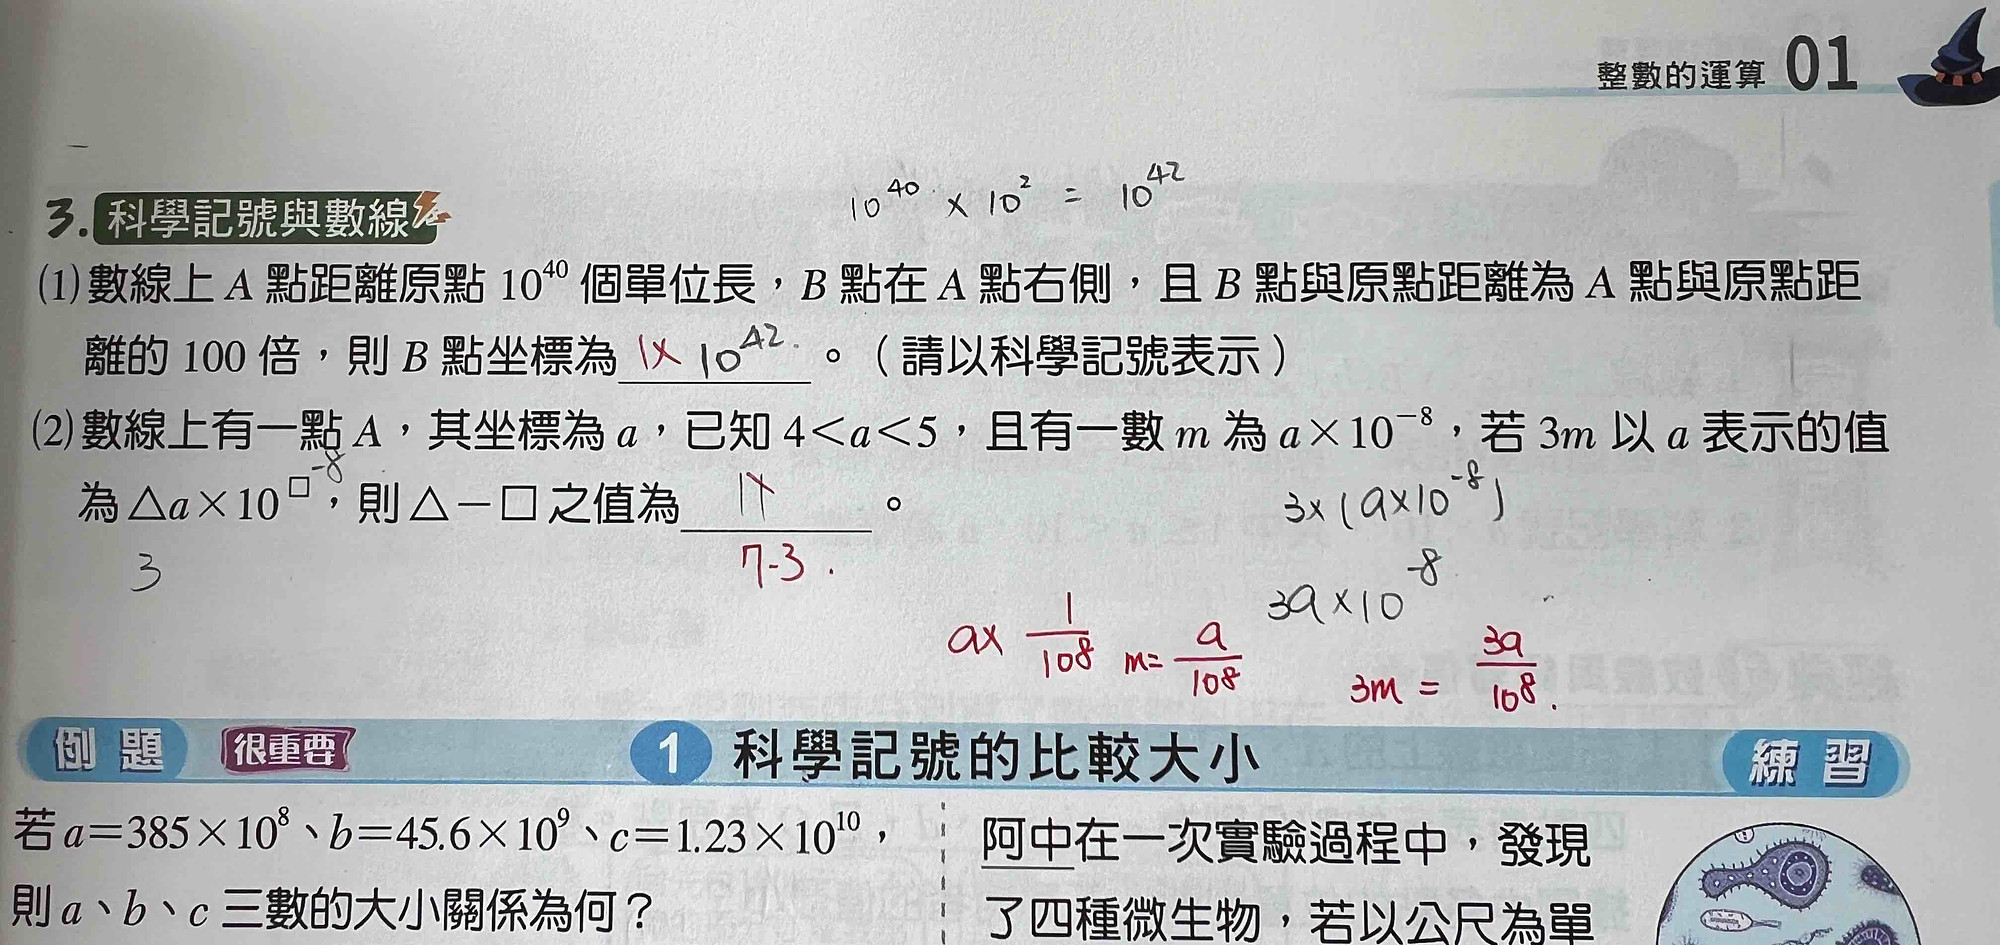 整數的運算 01
10⁴⁰ × 10² = 10⁴²
3. 科學記號與數線
(1) 數線上 A 點距離原點 10⁴⁰ 個單位長，B 點在 A 點右側，且 B 點與原點距離為 A 點與原點距
離的 100 倍，則 B 點坐標為 1× 10⁴² 。（請以科學記號表示）
(2) 數線上有一點 A，其坐標為 a，已知 4＜a＜5，且有一數 m 為 a×10⁻⁸，若 3m 以 a 表示的值
-8
為 △a×10^□，則 △－□ 之值為 11 。
3×(a×10⁻⁸)
3
7-3 .
3a×10⁻⁸
a× 1/10⁸ m= a/10⁸ 3m = 3a/10⁸.
例題 很重要 1 科學記號的比較大小 練習
若 a＝385×10⁸、b＝45.6×10⁹、c＝1.23×10¹⁰，
則 a、b、c 三數的大小關係為何？
阿中在一次實驗過程中，發現
了四種微生物，若以公尺為單